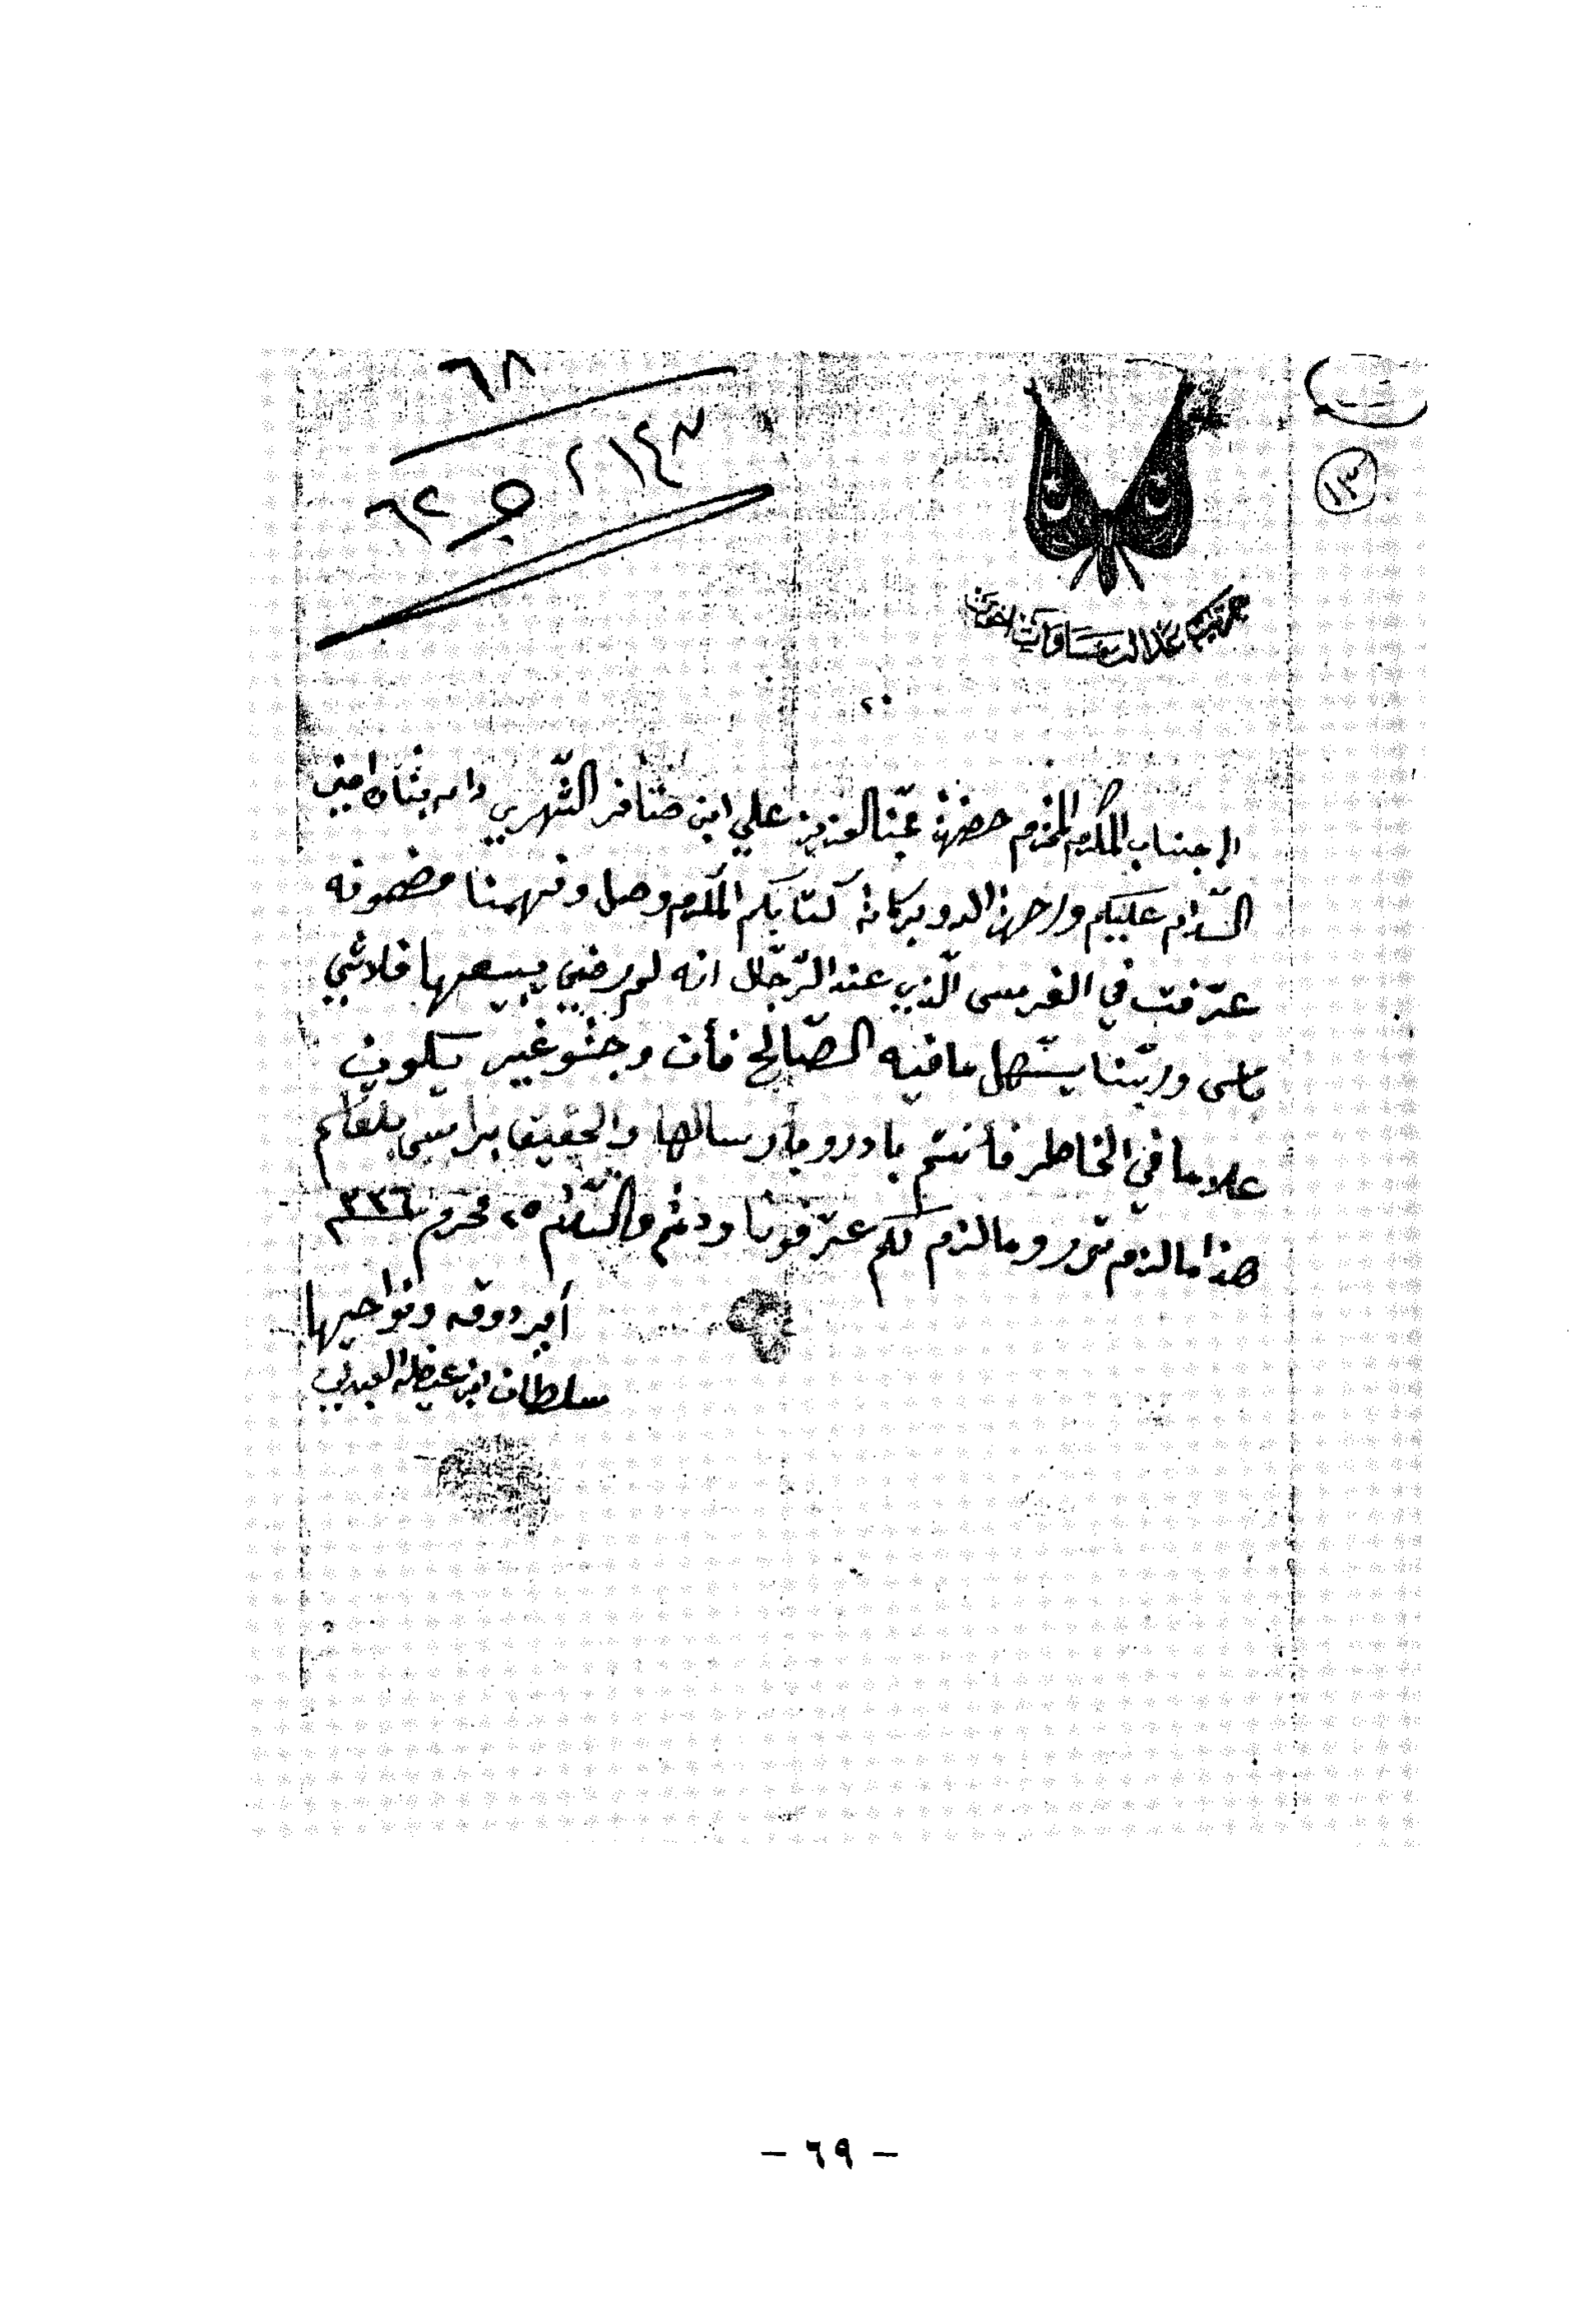 ٦٨
١٣
الى جناب المكرم المحترم حضرة عمنا العزيز علي ابن ضافر الشهري دام بقاه امين
السلام عليكم ورحمة الله وبركاته كتابكم المكرم وصل وفهمنا مضمونه
عرّفت في الفرس الذي عند الرجّال انه لم رضي يبيعها فلا شي
باس وربّنا يسهّل ما فيه الصّالح فأن وجدتو غير يكون
علا ما في الخاطر فأنتم بادرو بأرسالها والحقيق براسي بلغاكم
هذا ما لزم حرر وما لزم لكم عرّفونا ودمتم والسّلام ٢٥ محرم ٣٣٦
أمير دوقه ونواحيها
سلطان ابن العبدلي
— ٦٩ —